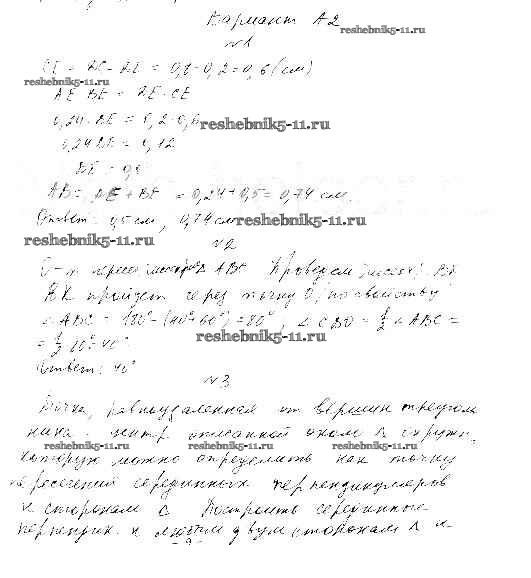 Вариант А2
reshebnik5-11.ru
№1
CE = DC - DE = 0,8 - 0,2 = 0,6 (см)
reshebnik5-11.ru
AE · BE = DE · CE
0,24 · BE = 0,2 · 0,6
reshebnik5-11.ru
0,24 BE = 0,12
BE = 0,5
AB = AE + BE = 0,24 + 0,5 = 0,74 см.
Ответ: 0,5 см, 0,74 см
reshebnik5-11.ru
reshebnik5-11.ru
№2
О - т. пересеч. биссектрис Δ ABC. Проведем биссект. BK
BK пройдет через точку О (по свойству)
∠ABC = 180° - (40° + 60°) = 80°, ∠CBO = 1/2 ∠ABC =
reshebnik5-11.ru
= 1/2 80° = 40°
Ответ: 40°
№3
Точка, равноудаленная от вершин треуголь
ника - центр описанной около Δ окружн.,
reshebnik5-11.ru
reshebnik5-11.ru
reshebnik5-11.ru
которую можно определить как точку
пересечения серединных перпендикуляров
reshebnik5-11.ru
к сторонам Построить серединные
reshebnik5-11.ru
перпендик. к любым двум сторонам Δ и